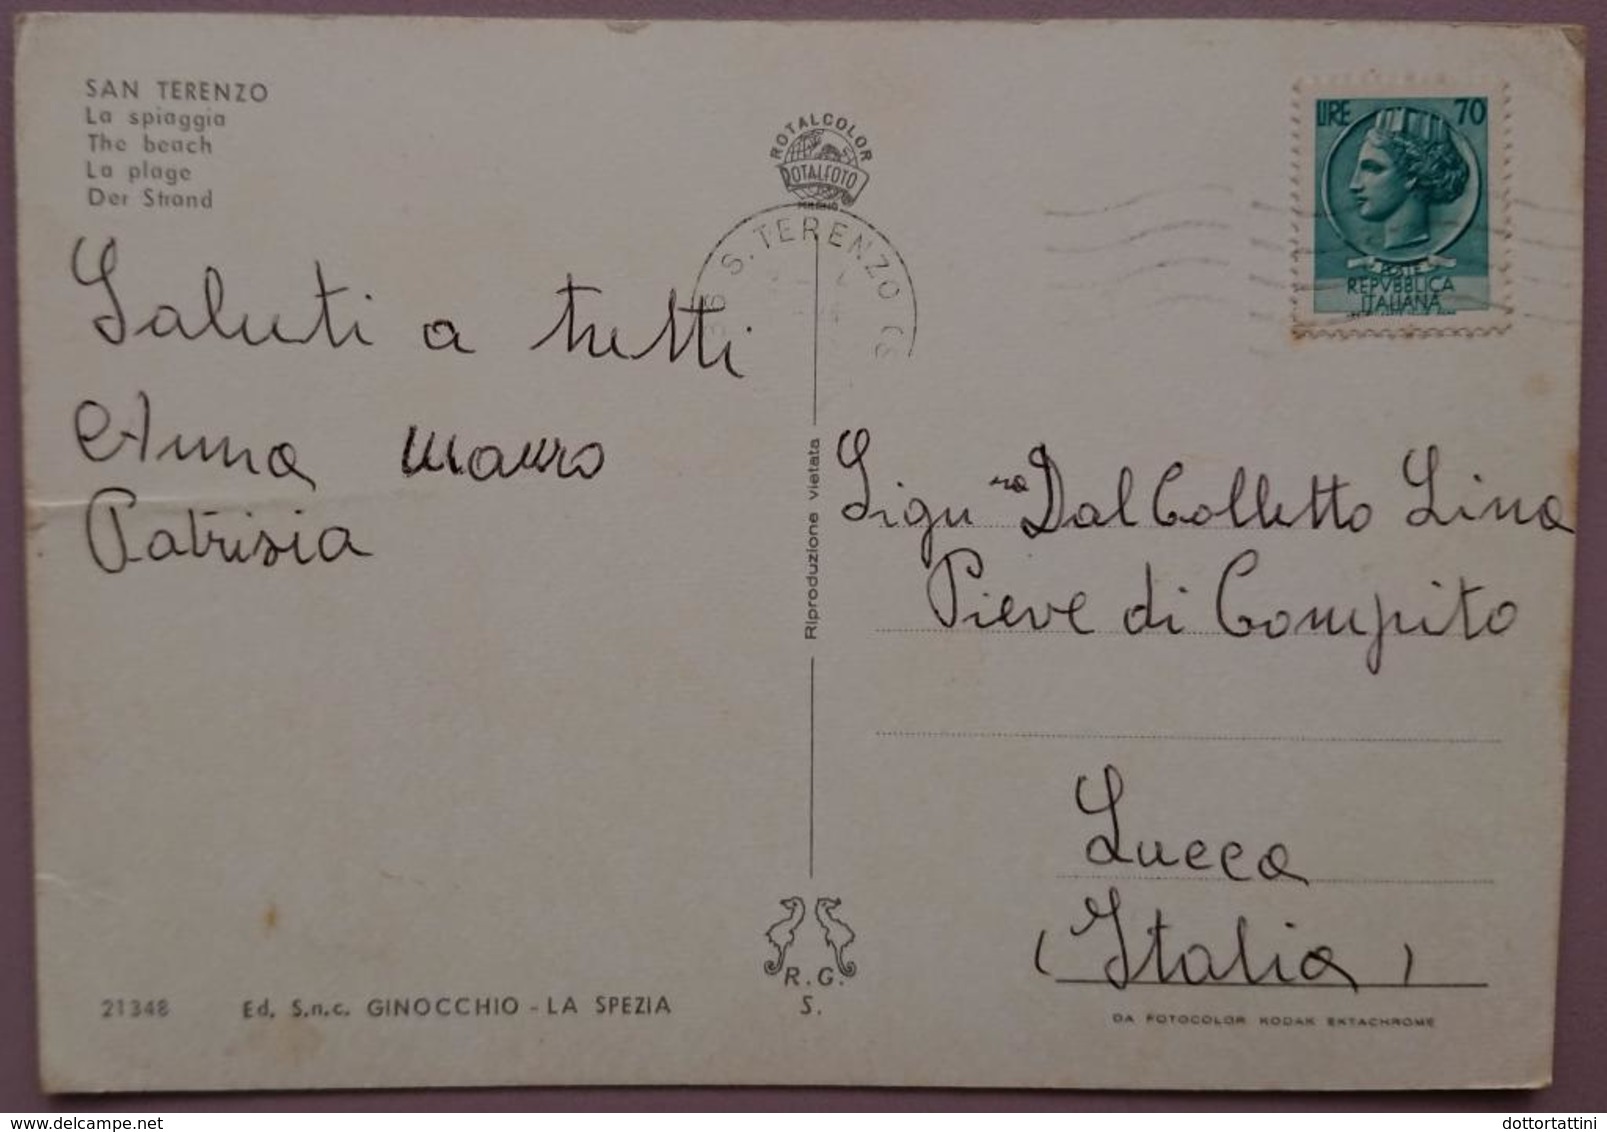 SAN TERENZO
La spiaggia
The beach
La plage
Der Strand
ROTALCOLOR
ROTALFOTO
MILANO
S. TERENZO (S
LIRE 70
POSTE
REPVBBLICA
ITALIANA
Saluti a tutti
Anna Mauro
Patrisia
Riproduzione vietata
Sign.ra Dal Colletto Lina
Pieve di Compito
Lucca
(Italia)
R. G.
S.
21348 Ed. S.n.c. GINOCCHIO - LA SPEZIA
DA FOTOCOLOR KODAK EKTACHROME
delcampe.net
dottortattini